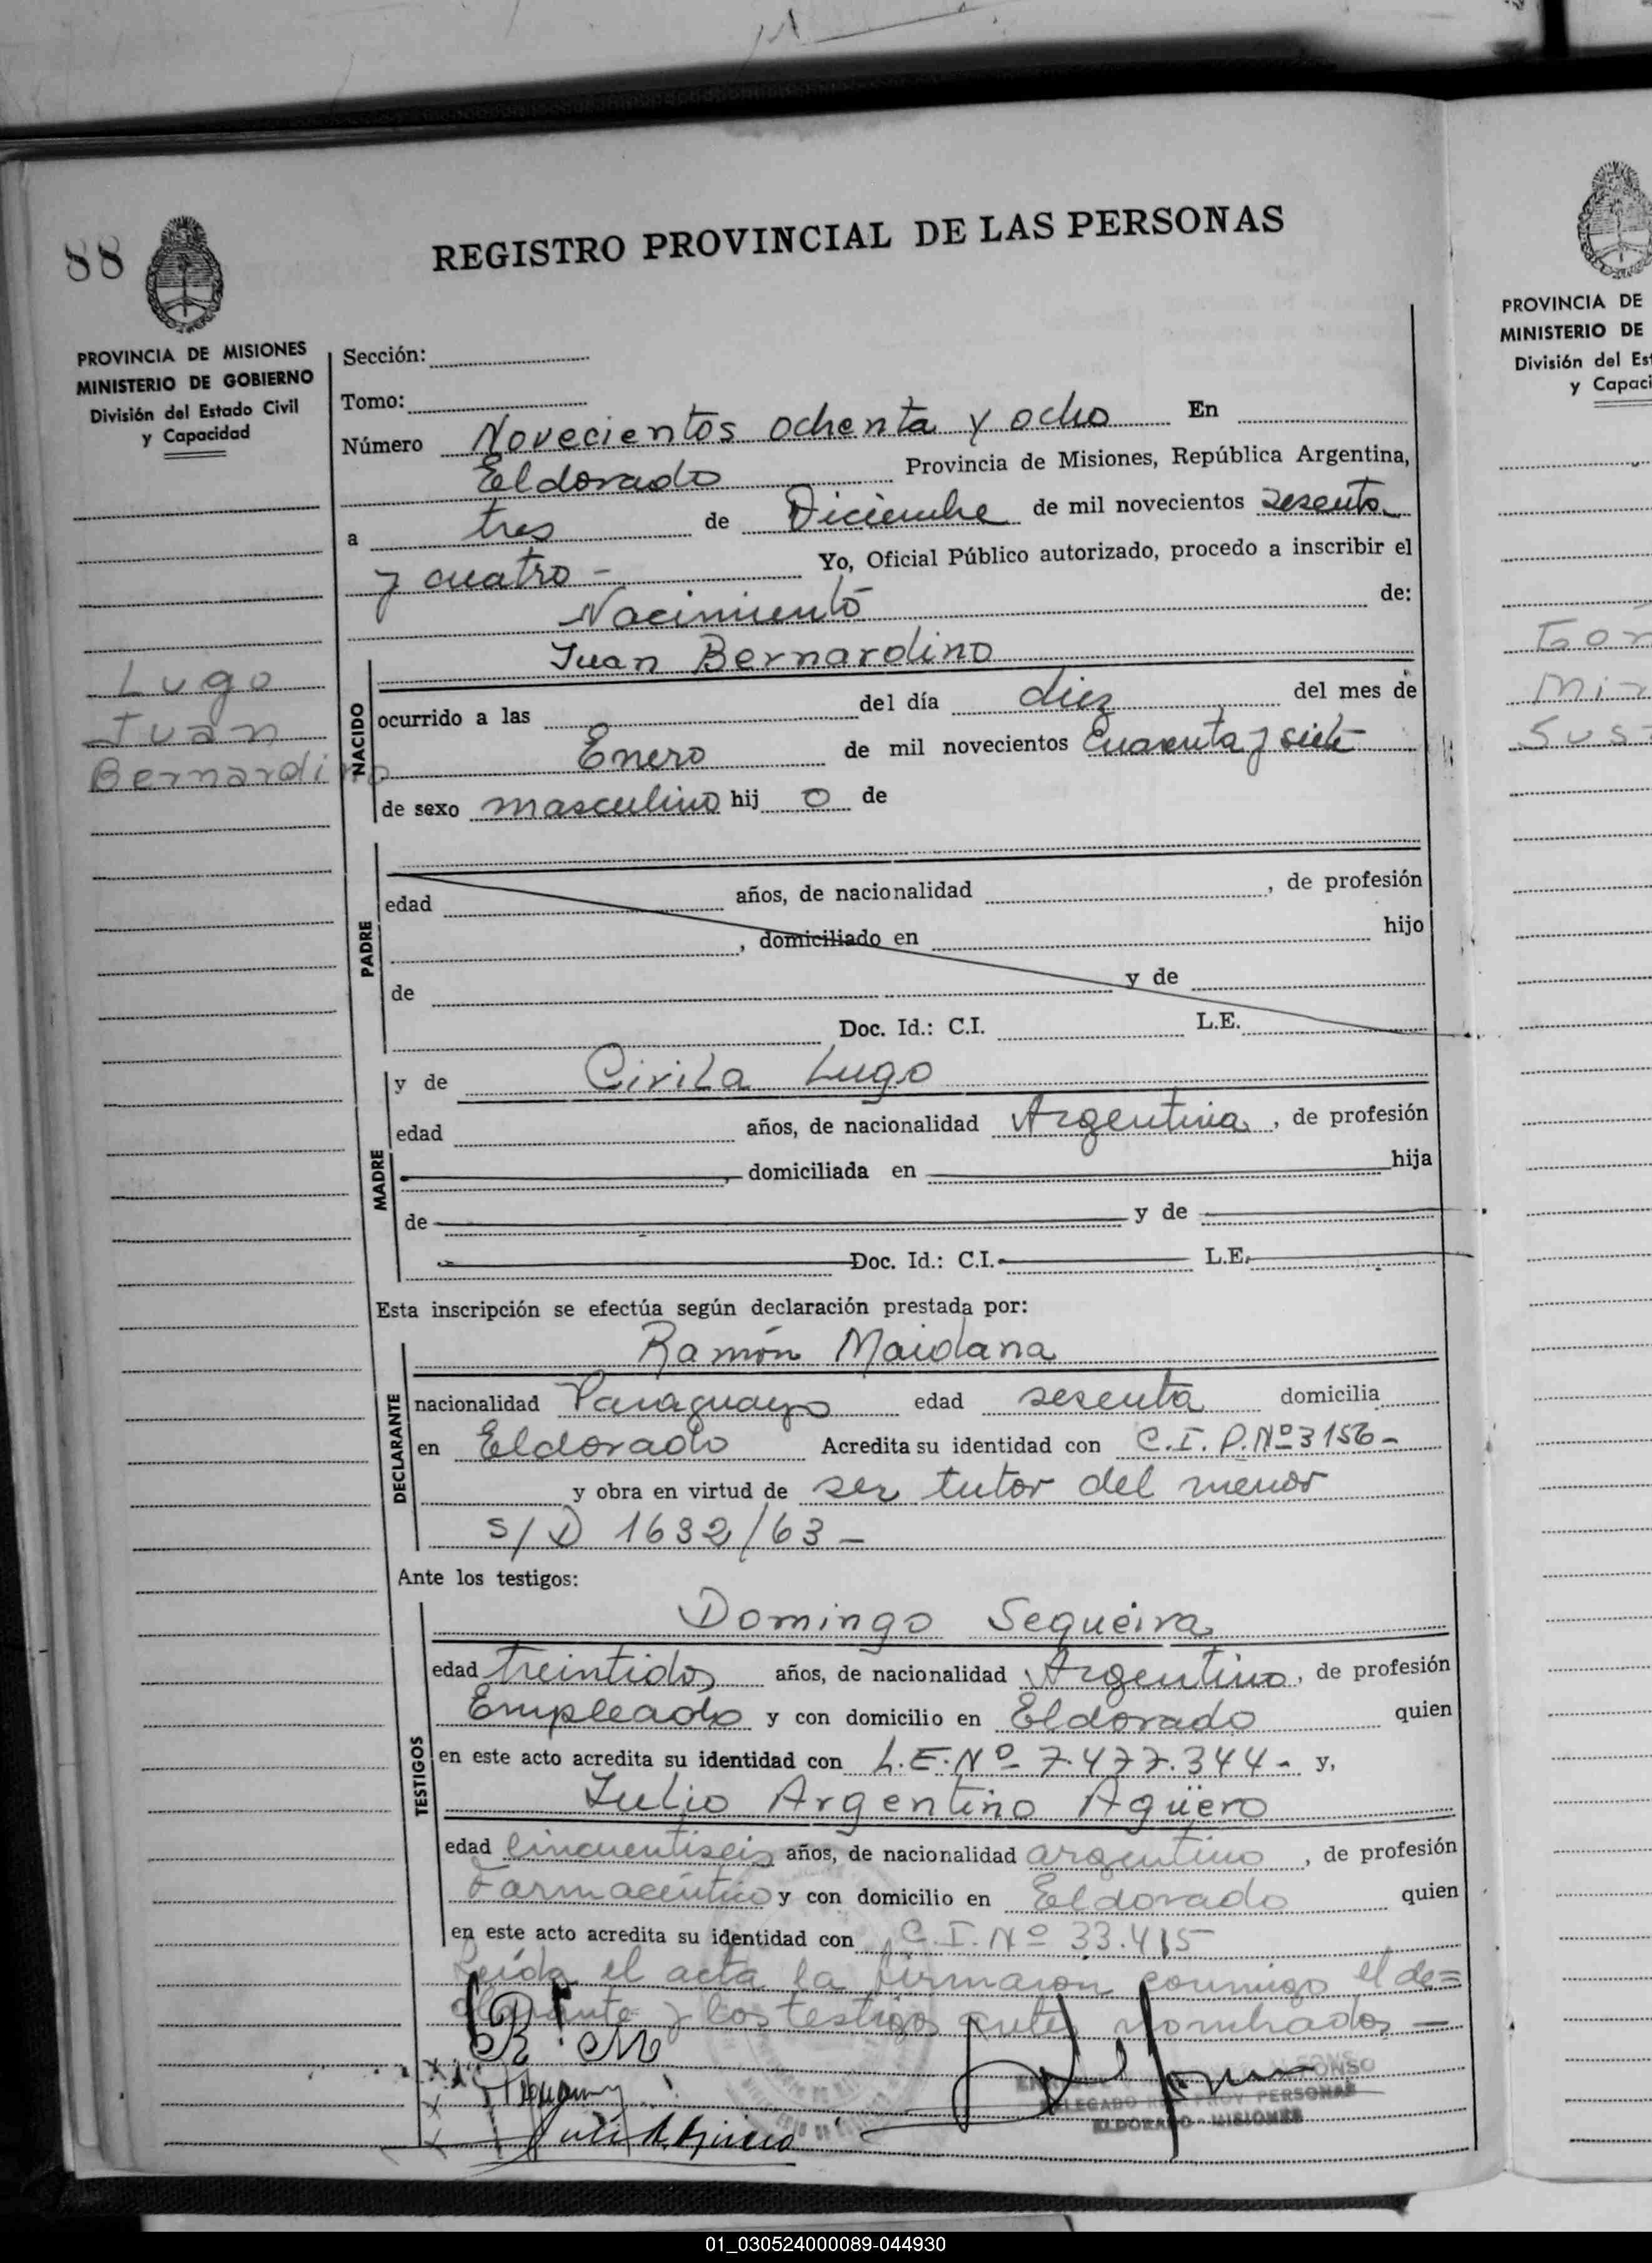 88
REGISTRO PROVINCIAL DE LAS PERSONAS
PROVINCIA DE MISIONES
MINISTERIO DE GOBIERNO
División del Estado Civil
y Capacidad
Lugo
Juan
Bernardino
Sección:
Tomo:
Número Novecientos ochenta y ocho En
Eldorado Provincia de Misiones, República Argentina,
a tres de Diciembre de mil novecientos sesenta
y cuatro - Yo, Oficial Público autorizado, procedo a inscribir el
Nacimiento de:
NACIDO
Juan Bernardino
ocurrido a las del día diez del mes de
Enero de mil novecientos Cuarenta y siete
de sexo masculino hij o de
PADRE
edad años, de nacionalidad , de profesión
, domiciliado en hijo
de y de
Doc. Id.: C.I. L.E.
MADRE
y de Cirila Lugo
edad años, de nacionalidad Argentina, de profesión
, domiciliada en hija
de y de
Doc. Id.: C.I. L.E.
Esta inscripción se efectúa según declaración prestada por:
DECLARANTE
Ramón Maidana
nacionalidad Paraguayo edad sesenta domicilia
en Eldorado Acredita su identidad con C.I.P.Nº3156-
y obra en virtud de ser tutor del menor
S/D 1632/63 -
Ante los testigos:
TESTIGOS
Domingo Sequeira
edad treintidos años, de nacionalidad Argentino, de profesión
Empleado y con domicilio en Eldorado quien
en este acto acredita su identidad con L.E.Nº 7.477.344- y,
Julio Argentino Agüero
edad cincuentiseis años, de nacionalidad argentino, de profesión
Farmacéutico y con domicilio en Eldorado quien
en este acto acredita su identidad con C.I.Nº 33.415
Leída el acta la firmaron conmigo el de=
clarante y los testigos antes nombrados -
R. M
DELEGADO REG. PROV. PERSONAS
ELDORADO - MISIONES
PROVINCIA DE
MINISTERIO DE
División del Es
y Capaci
Sus
01_030524000089-044930